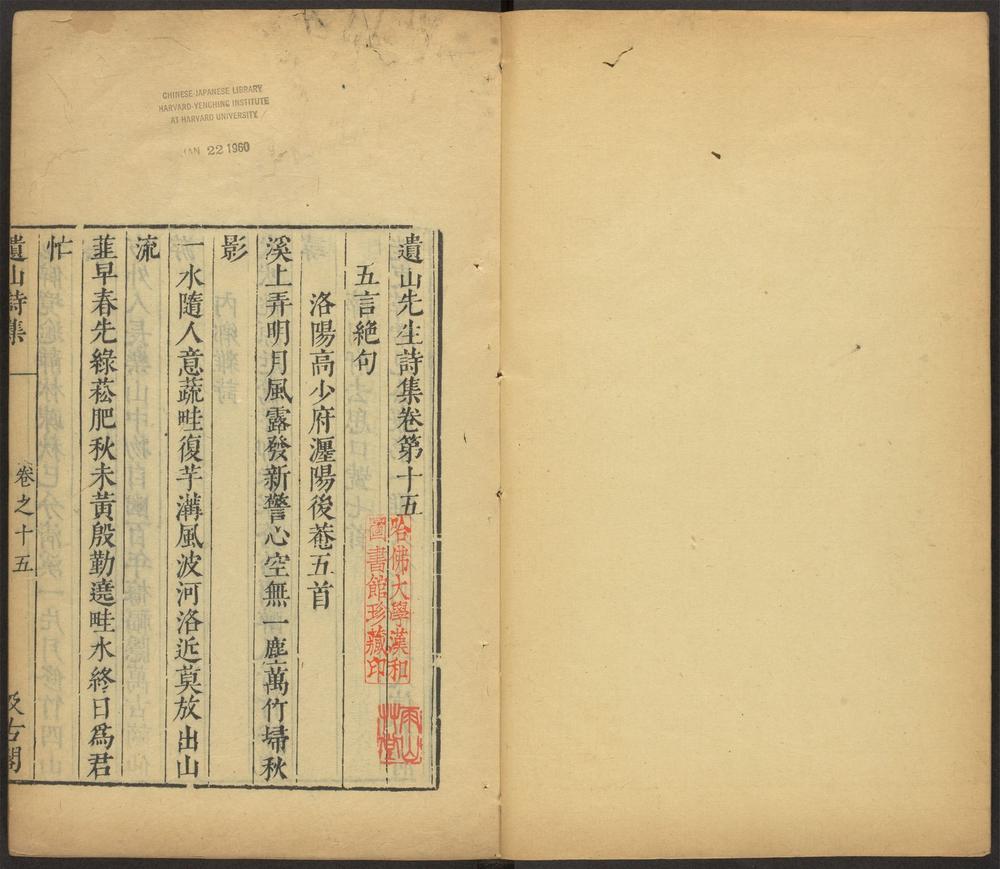 CHINESE-JAPANESE LIBRARY
HARVARD-YENCHING INSTITUTE
AT HARVARD UNIVERSITY
JAN 22 1960
遺山先生詩集卷第十五
五言絕句
洛陽高少府瀍陽後菴五首
溪上弄明月風露發新警心空無一塵萬竹埽秋
影
一水隨人意蔬畦復芋溝風波河洛近莫放出山
流
韮早春先綠菘肥秋未黃殷勤遶畦水終日爲君
忙
遺山詩集
卷之十五
汲古閣
哈佛大學漢和
圖書館珍藏印